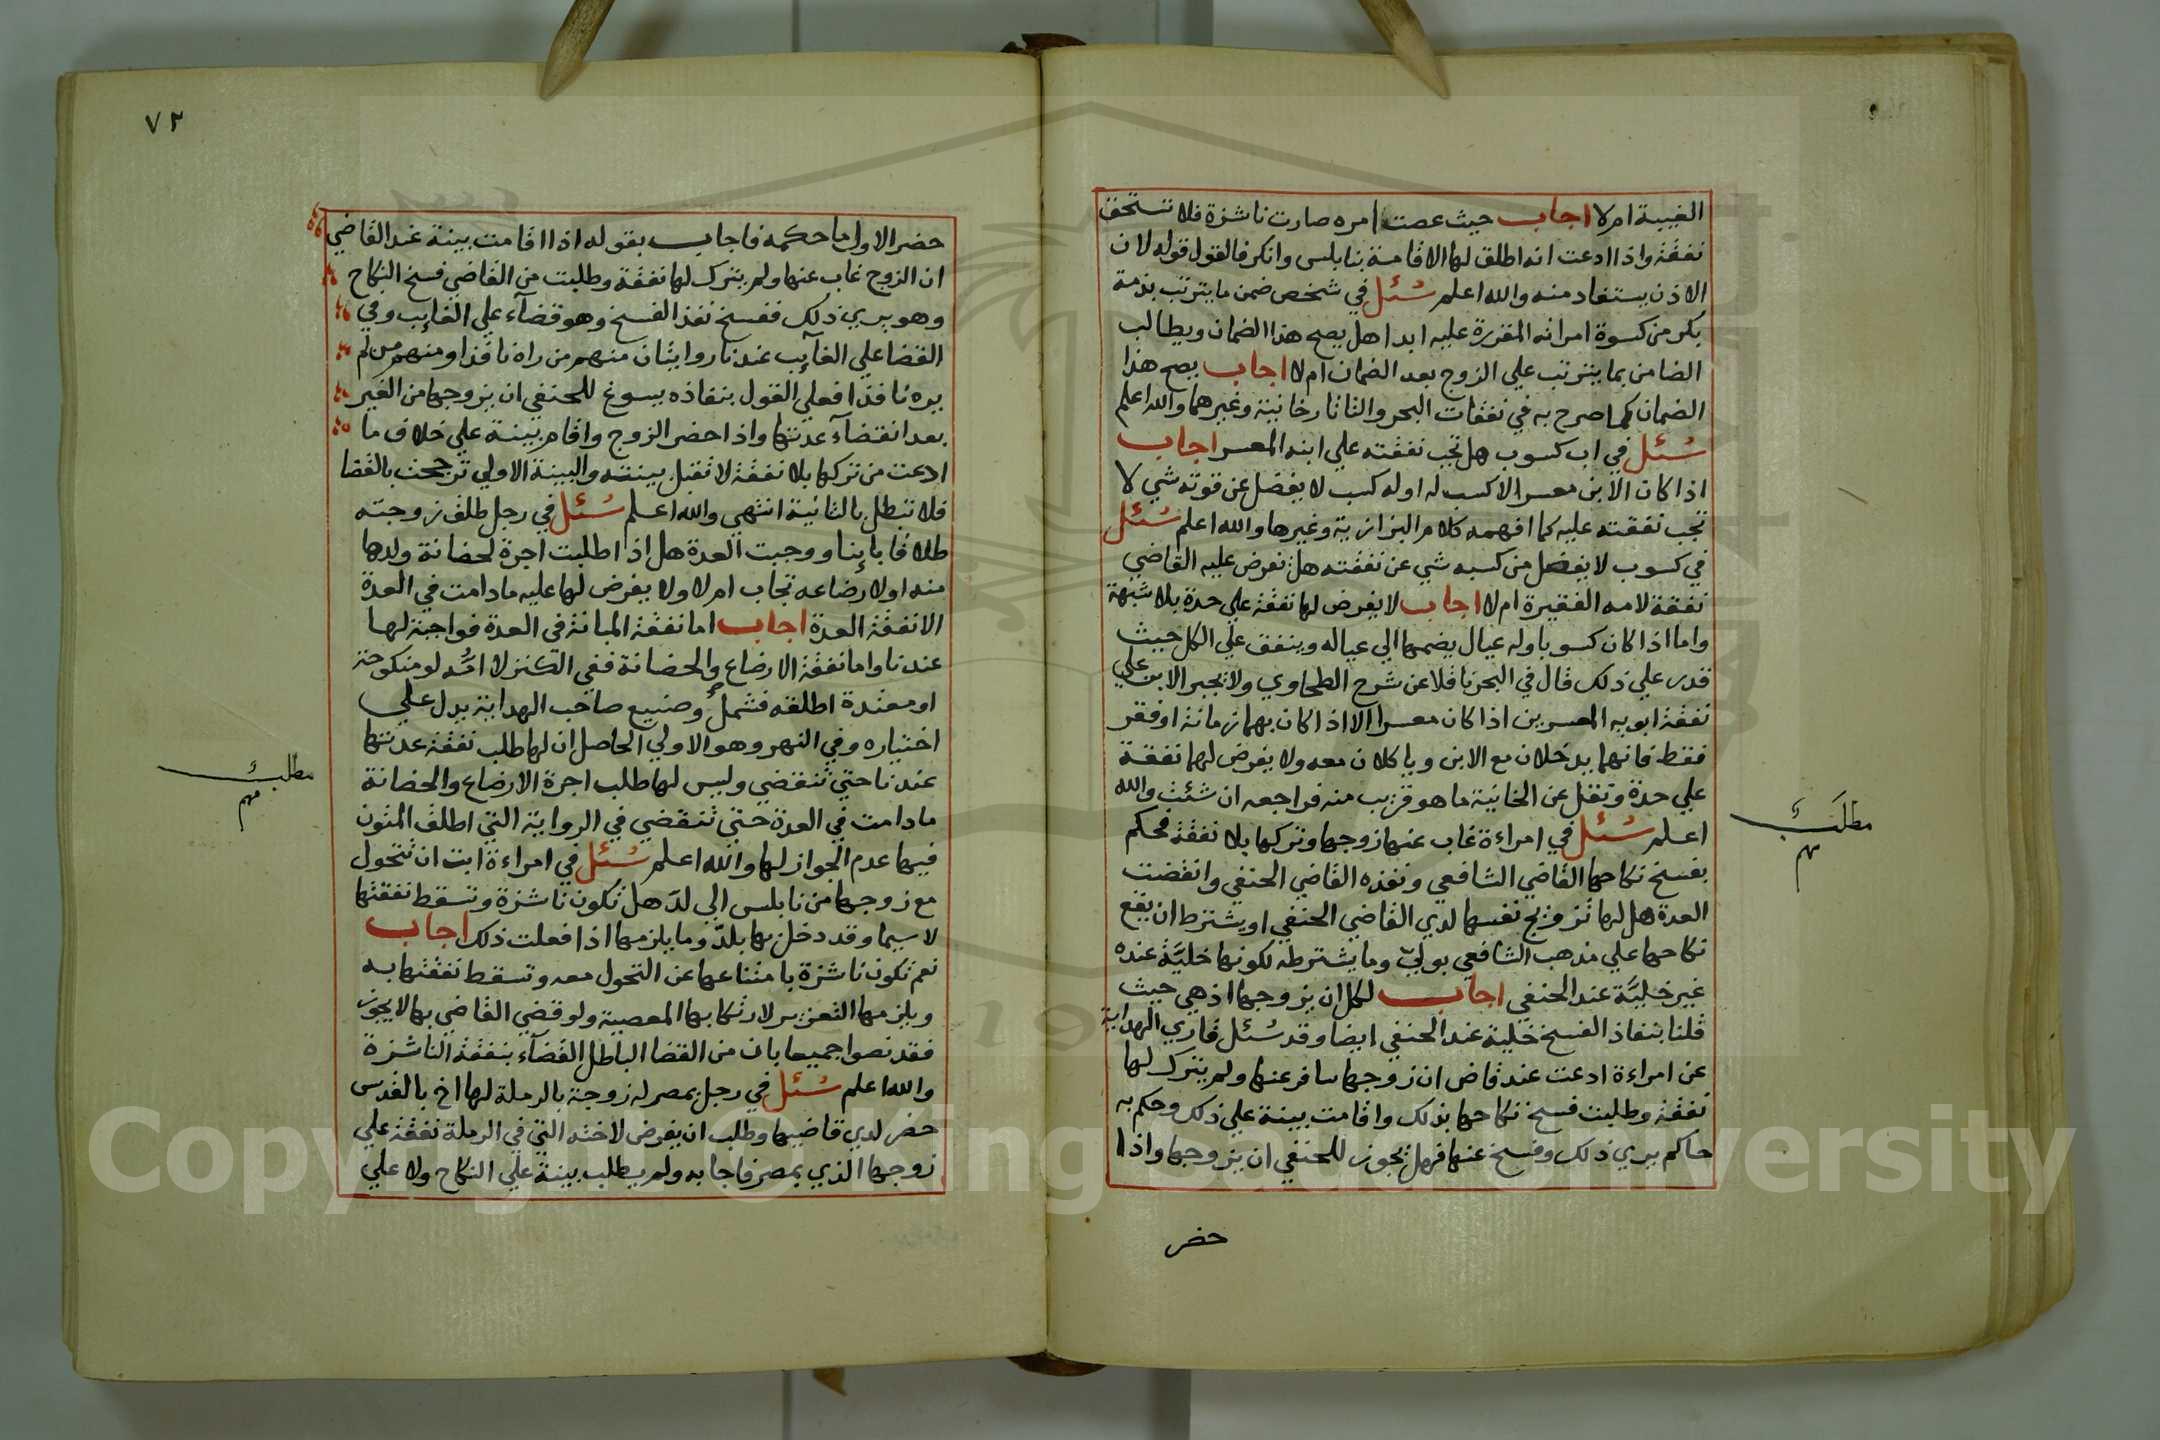 الغيبة ام لا اجاب حيث عصت امره صارت ناشزة فلا تستحق
نفقة واذا ادعت انه اطلق لها الاقامة بنابلس وانكر فالقول قوله لان
الاذن يستفاد منه والله اعلم سُئل في شخص ضمن ما يترتب بذمة
بكر من كسوة امراته المقررة عليه ابدا هل يصح هذا الضمان ويطالب
الضامن بما يترتب علي الزوج بعد الضمان ام لا اجاب يصح هذا
الضمان كما صرح به في نفقات البحر والتاتارخانية وغيرهما والله اعلم
سُئل في اب كسوب هل تجب نفقته علي ابنه المعسر اجاب
اذا كان الابن معسرا لا كسب له او له كسب لا يفضل عن قوته شي لا
تجب نفقته عليه كما افهمه كلام البزازية وغيرها والله اعلم سُئل
في كسوب لا يفضل من كسبه شي عن نفقته هل تفرض عليه القاضي
نفقة لامه الفقيرة ام لا اجاب لا يفرض لها نفقة علي حدة بلا شبهة
واما اذا كان كسوبا وله عيال يضمها الي عياله وينفق علي الكل حيث
قدر علي ذلك قال في البحر نا قلا عن شرح الطحاوي ولا يجبر الابن علي
نفقة ابويه المعسرين اذا كان معسرا الا اذا كان بهما زمانة او فقر
فقط فانهما يدخلان مع الابن وياكلان معه ولا يفرض لهما نفقة
علي حدة ونقل عن الخانية ما هو قريب منه فراجعه ان شئت والله
اعلم سُئل في امراءة غاب عنها زوجها وتركها بلا نفقة فحكم
بفسخ نكاحها القاضي الشافعي ونفذه القاضي الحنفي وانقضت
العدة هل لها تزويج نفسها لدي القاضي الحنفي او يشترط ان يقع
نكاحها علي مذهب الشافعي بولي وما يشترطه لكونها خليَّة عنده
غير خليَّة عند الحنفي اجاب لكل ان يزوجها اذ هي حيث
قلنا بنفاذ الفسخ خلية عند الحنفي ايضا وقد سُئل قاري الهداية
عن امراءة ادعت عند قاض ان زوجها سافر عنها ولم يترك لها
نفقة وطلبت فسخ نكاحها بذلك واقامت بينة علي ذلك وحكم به
حاكم يري ذلك وفسخ عنها فهل يجوز للحنفي ان يزوجها واذا
حضر
مطلب
مهم
٧٣
حضر الاول ما حكمه فاجاب بقوله اذا اقامت بينة عند القاضي
ان الزوج غاب عنها ولم يترك لها نفقة وطلبت من القاضي فسخ النكاح
وهو يري ذلك ففسخ نفذ الفسخ وهو قضآء علي الغايب وفي
القضا علي الغايب عندنا روايتان منهم من راه نافذا ومنهم من لم
يره نافذا فعلي القول بنفاذه يسوغ للحنفي ان يزوجها من الغير
بعد انقضآء عدتها واذا حضر الزوج واقام بينة علي خلاف ما
ادعت من تركها بلا نفقة لا تقبل بينته والبينة الاولي ترجحت بالقضا
فلا تبطل بالثانية انتهي والله اعلم سُئل في رجل طلق زوجته
طلاقا باينا ووجبت العدة هل اذا طلبت اجرة لحضانة ولدها
منه او لا رضاعه تجاب ام لا ولا يفرض لها عليه ما دامت في العدة
الا نفقة العدة اجاب اما نفقة المبانة في العدة فواجبة لها
عندنا واما نفقة الارضاع والحضانة ففي الكنز لا امُّه لو منكوحة
او معتدة اطلقه فشمل وصنيع صاحب الهداية يدل علي
اختياره وفي النهر وهو الاولي الحاصل ان لها طلب نفقة عدتها
عندنا حتي تنقضي وليس لها طلب اجرة الارضاع والحضانة
ما دامت في العدة حتي تنقضي في الرواية التي اطلق المتون
فيها عدم الجواز لها والله اعلم سُئل في امراءة ابت ان تتحول
مع زوجها من نابلس الي لد هل تكون ناشزة وتسقط نفقتها
لا سيما وقد دخل بها بلد وما يلزمها اذا فعلت ذلك اجاب
نعم تكون ناشزة بامتناعها عن التحول معه وتسقط نفقتها به
ويلزمها التعزير لارتكابها المعصية ولو قضي القاضي بها لا يجوز
فقد نصوا جميعا بان من القضا الباطل القضآء بنفقة الناشزة
والله اعلم سُئل في رجل بمصر له زوجة بالرملة لها اخ بالقدس
حضر لدي قاضيها وطلب ان يفرض لاخته التي في الرملة نفقة علي
زوجها الذي بمصر فاجابه ولم يطلب بينة علي النكاح ولا علي
مطلب
مهم
Copyright © King Saud University